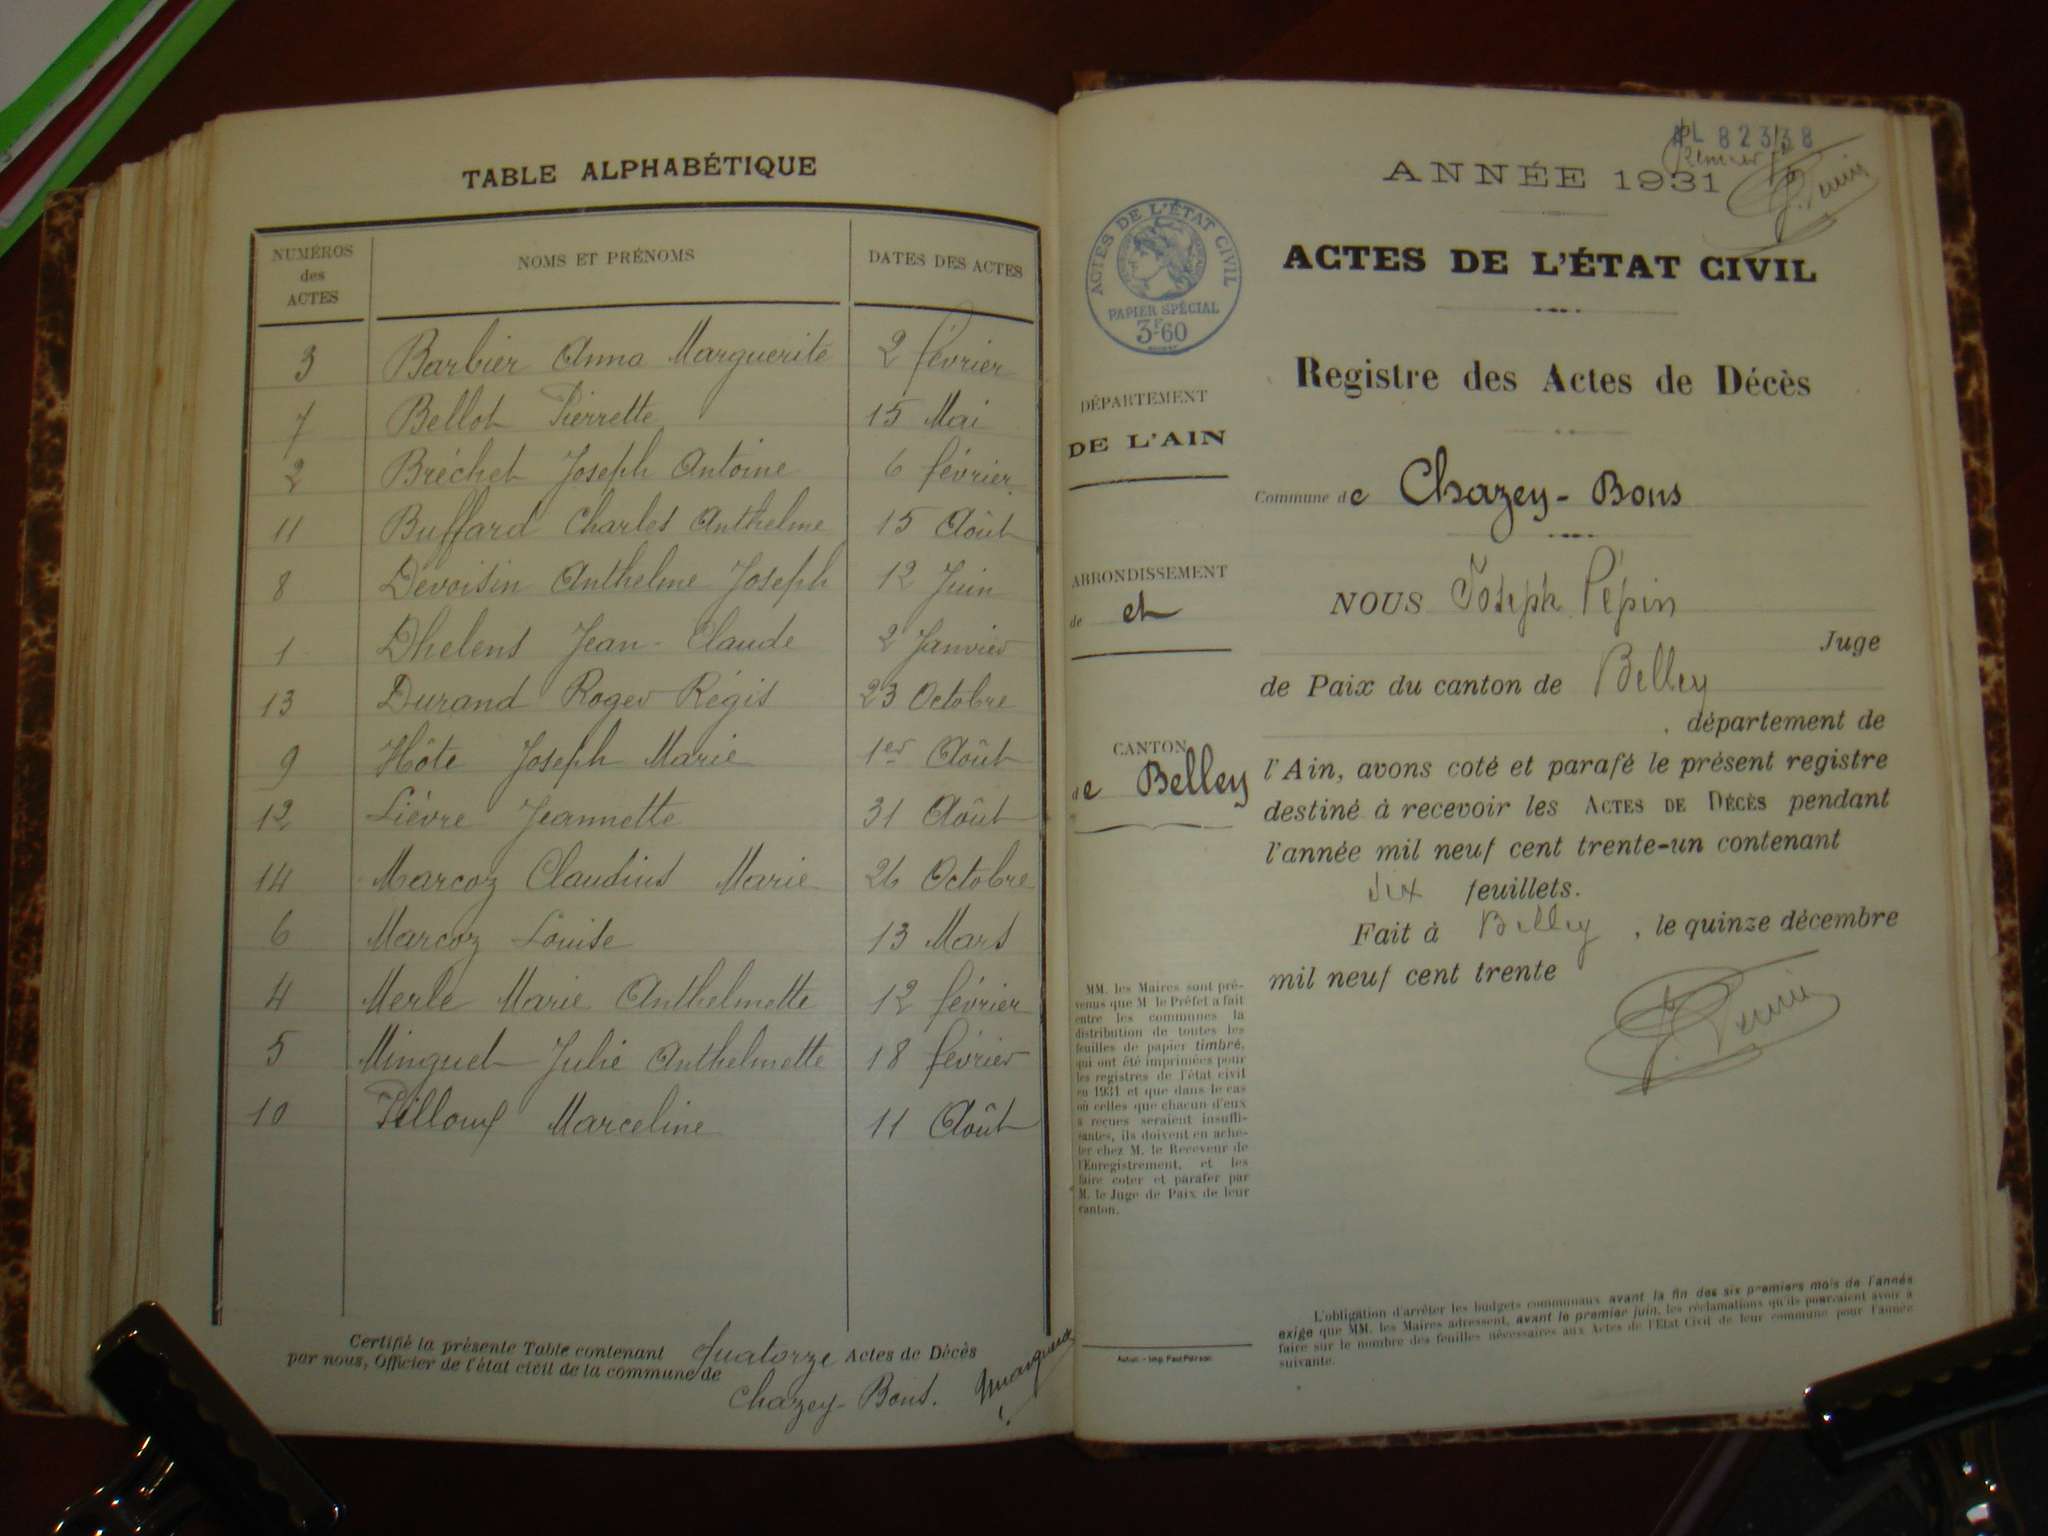 TABLE ALPHABÉTIQUE
NUMÉROS des ACTES NOMS ET PRÉNOMS DATES DES ACTES
3 Barbier Anna Marguerite 2 février
7 Bellot Pierrette 15 Mai
2 Bréchet Joseph Antoine 6 février
11 Buffard Charles Anthelme 15 Août
8 Devoisin Anthelme Joseph 12 Juin
1 Dhelens Jean-Claude 2 Janvier
13 Durand Roger Régis 23 Octobre
9 Hôte Joseph Marie 1er Août
12 Lièvre Jeannette 31 Août
14 Marcoz Claudius Marie 26 Octobre
6 Marcoz Louise 13 Mars
4 Merle Marie Anthelmette 12 février
5 Minguet Julie Anthelmette 18 février
10 Marceline 11 Août
Certifié la présente Table contenant Quatorze Actes de Décès
par nous, Officier de l'état civil de la commune de
Chazey-Bons.
PL 823/38
ANNÉE 1931
ACTES DE L'ÉTAT CIVIL
PAPIER SPÉCIAL
3F60
ACTES DE L'ÉTAT CIVIL
Registre des Actes de Décès
DÉPARTEMENT
DE L'AIN
Commune de Chazey-Bons
ARRONDISSEMENT
de et
CANTON
de Belley
NOUS Joseph Pépin
Juge
de Paix du canton de Belley
, département de
l'Ain, avons coté et parafé le présent registre
destiné à recevoir les ACTES DE DÉCÈS pendant
l'année mil neuf cent trente-un contenant
feuillets.
Fait à Belley, le quinze décembre
mil neuf cent trente
MM. les Maires sont pré-
venus que M. le Préfet a fait
entre les communes la
distribution de toutes les
feuilles de papier timbré,
qui ont été imprimées pour
les registres de l'état civil
en 1931 et que dans le cas
où celles que chacun d'eux
a reçues seraient insuffi-
santes, ils doivent en ache-
ter chez M. le Receveur de
l'Enregistrement, et les
faire coter et parafer par
M. le Juge de Paix de leur
canton.
L'obligation d'arrêter les budgets communaux avant la fin des six premiers mois de l'année
exige que MM. les Maires adressent, avant le premier juin, les réclamations qu'ils pourraient avoir à
faire sur le nombre des feuilles nécessaires aux Actes de l'Etat Civil de leur commune pour l'année
suivante.